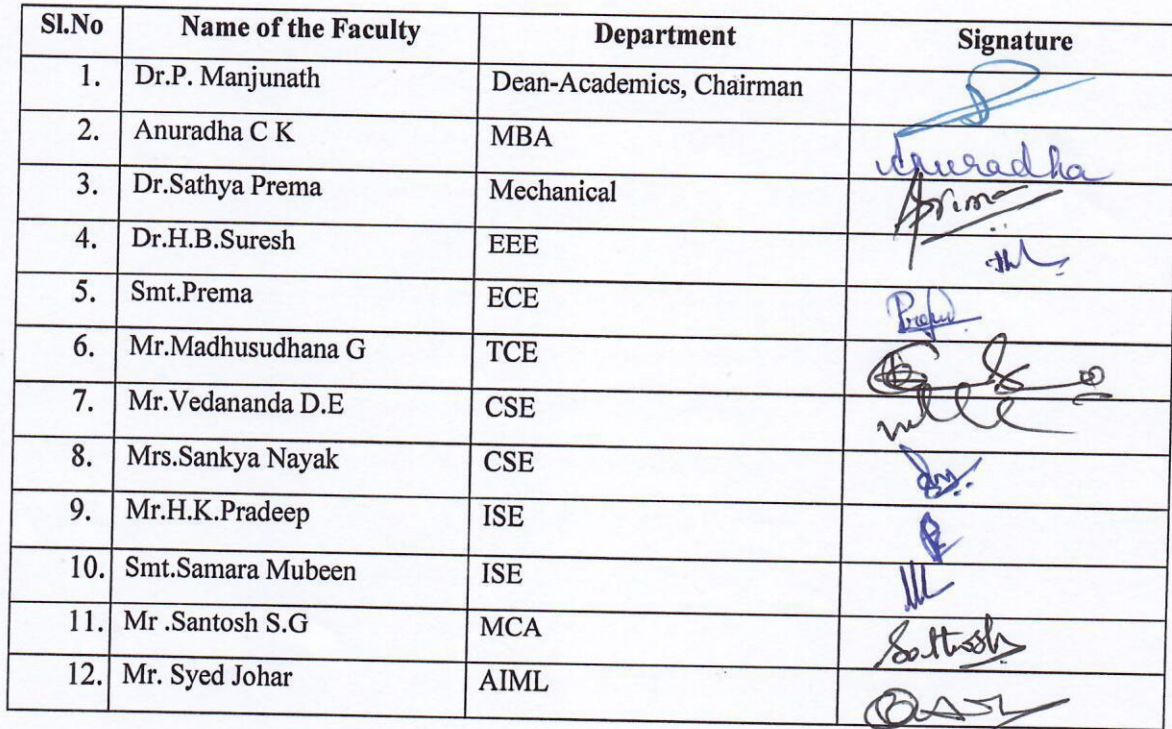 Sl.No Name of the Faculty Department Signature
1. Dr.P. Manjunath Dean-Academics, Chairman
2. Anuradha C K MBA Anuradha
3. Dr.Sathya Prema Mechanical
4. Dr.H.B.Suresh EEE
5. Smt.Prema ECE
6. Mr.Madhusudhana G TCE
7. Mr.Vedananda D.E CSE
8. Mrs.Sankya Nayak CSE
9. Mr.H.K.Pradeep ISE
10. Smt.Samara Mubeen ISE
11. Mr .Santosh S.G MCA Santosh
12. Mr. Syed Johar AIML